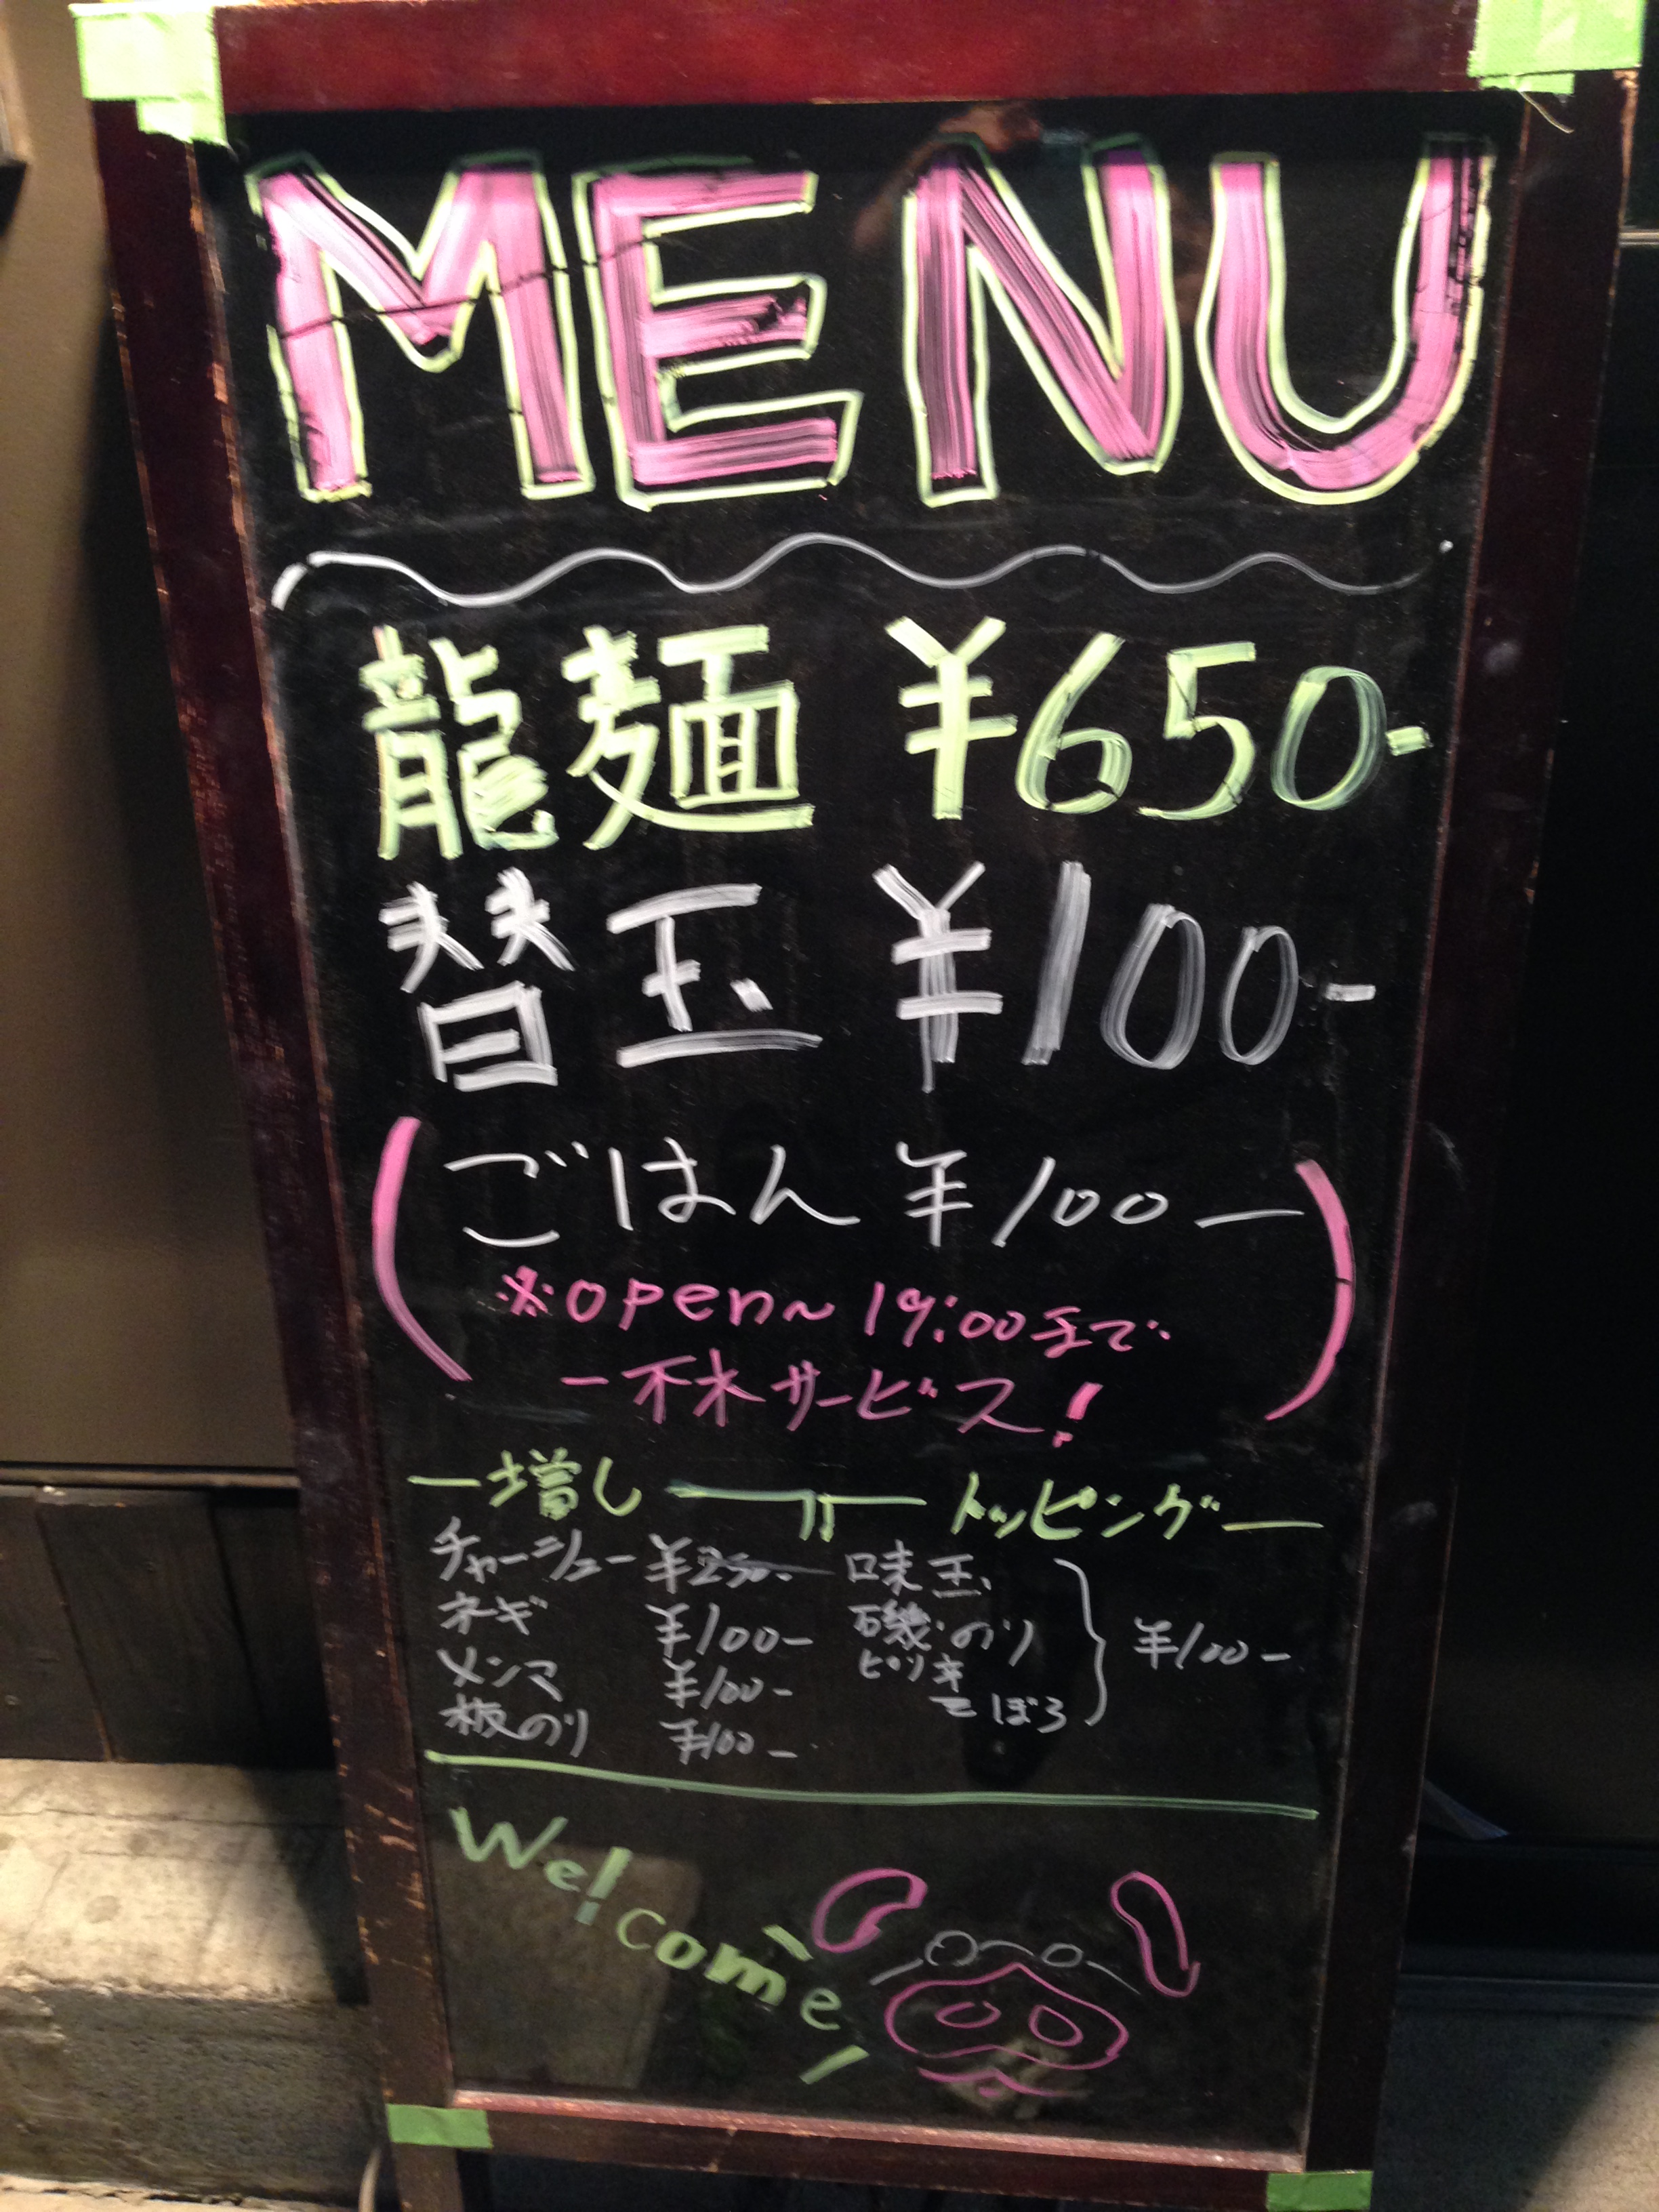 MENU
龍麺 ¥650-
替玉 ¥100-
ごはん ¥100-
※open〜19:00まで
一杯サービス!
増し
チャーシュー ¥250-
ネギ ¥100-
メンマ ¥100-
板のり ¥100-
トッピング
味玉
磯のり
ピリ辛
そぼろ
¥100-
Welcome